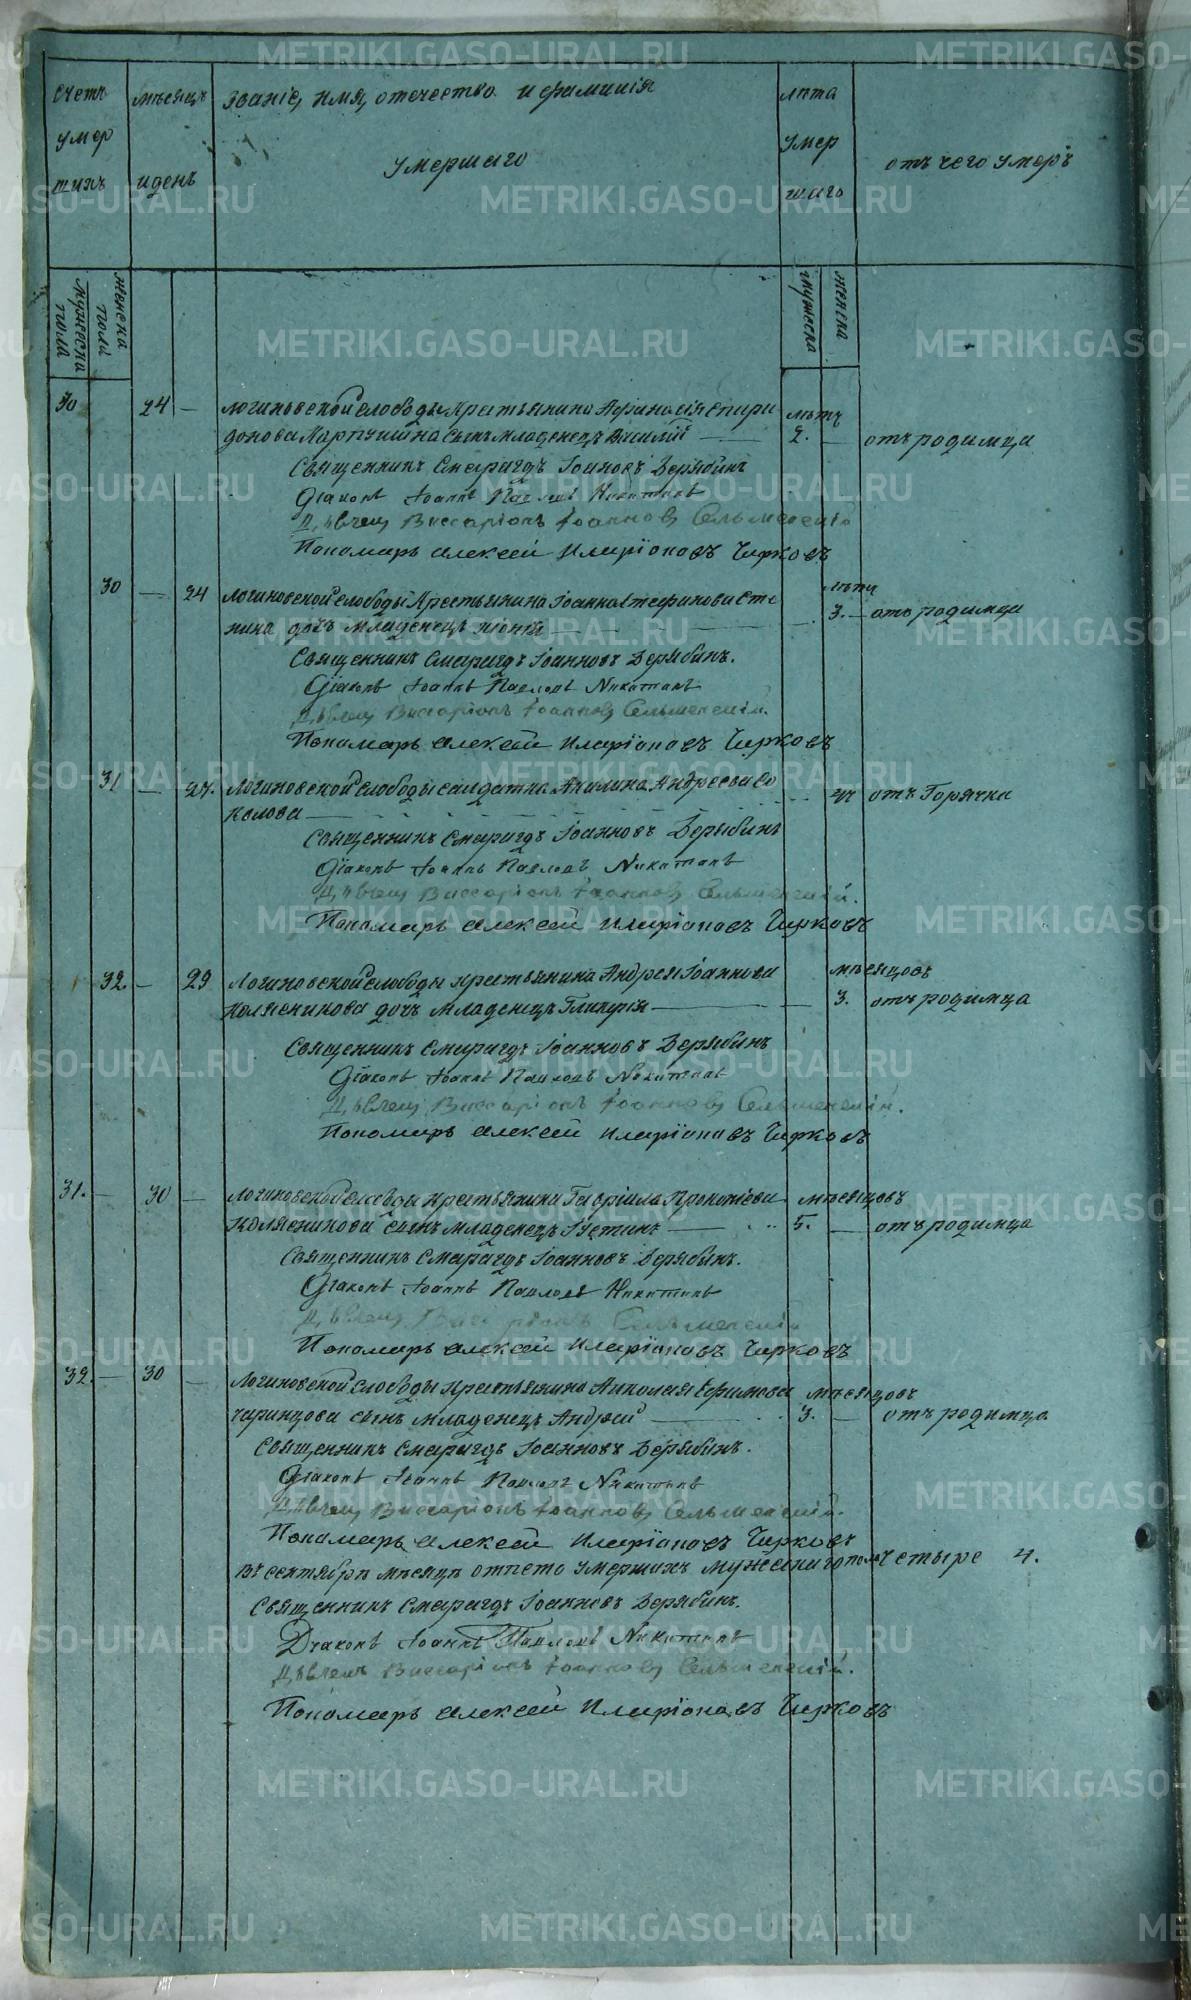 Счетъ умер шихъ
мѣсяцъ и день
Званіе, имя, отечество и фамилія
умершаго
лѣта умер шаго
отъ чего умеръ
мужеска пола
женска пола
мужеска
женска
30 24 — Логиновской слободы крестьянина Афанасія Спири лѣтъ
донова сынъ младенецъ Василій — 2. — отъ родимца
Священникъ Смарагдъ Іоанновъ Дерябинъ
Діаконъ Іоаннъ Павловъ Никитинъ
Дьячецъ Виссаріонъ Іоанновъ
Пономарь Алексей Иларіоновъ Чирковъ
30 — 24 Логиновской слободы крестьянина Іоанна Стефанова Сте лѣтъ
нина дочь младенецъ — 3. — отъ родимца
Священникъ Смарагдъ Іоанновъ Дерябинъ.
Діаконъ Іоаннъ Павловъ Никитинъ
Дьячецъ Виссаріонъ Іоанновъ
Пономарь Алексей Иларіоновъ Чирковъ
31 — 27. Логиновской слободы салдатка Акилина Андреева Со отъ Горячки
колова —
Священникъ Смарагдъ Іоанновъ Дерябинъ
Діаконъ Іоаннъ Павловъ Никитинъ
Дьячецъ Виссаріонъ Іоанновъ
Пономарь Алексей Иларіоновъ Чирковъ
32. — 29 Логиновской слободы крестьянина Андрея Іоаннова мѣсяцовъ
Колясникова дочь младенецъ Гликерія — 3. отъ родимца
Священникъ Смарагдъ Іоанновъ Дерябинъ
Діаконъ Іоаннъ Павловъ Никитинъ
Дьячецъ Виссаріонъ Іоанновъ
Пономарь Алексей Иларіоновъ Чирковъ
31. — 30 — Логиновской слободы крестьянина Гавріила Прокопіева мѣсяцовъ
Колясникова сынъ младенецъ Іустинъ — 5. — отъ родимца
Священникъ Смарагдъ Іоанновъ Дерябинъ.
Діаконъ Іоаннъ Павловъ Никитинъ
Дьячецъ
Пономарь Алексей Иларіоновъ Чирковъ
32. — 30 — Логиновской слободы крестьянина Николая Ефимова мѣсяцовъ
сынъ младенецъ Андрей — 3. — отъ родимца
Священникъ Смарагдъ Іоанновъ Дерябинъ.
Діаконъ Іоаннъ Павловъ Никитинъ
Дьячецъ Виссаріонъ Іоанновъ
Пономарь Алексей Иларіоновъ Чирковъ
въ сентябрѣ мѣсяцѣ отпето умершихъ мужескаго пола четыре 4.
Священникъ Смарагдъ Іоанновъ Дерябинъ.
Діаконъ Іоаннъ Павловъ Никитинъ
Дьячецъ Виссаріонъ Іоанновъ
Пономарь Алексей Иларіоновъ Чирковъ
METRIKI.GASO-URAL.RU